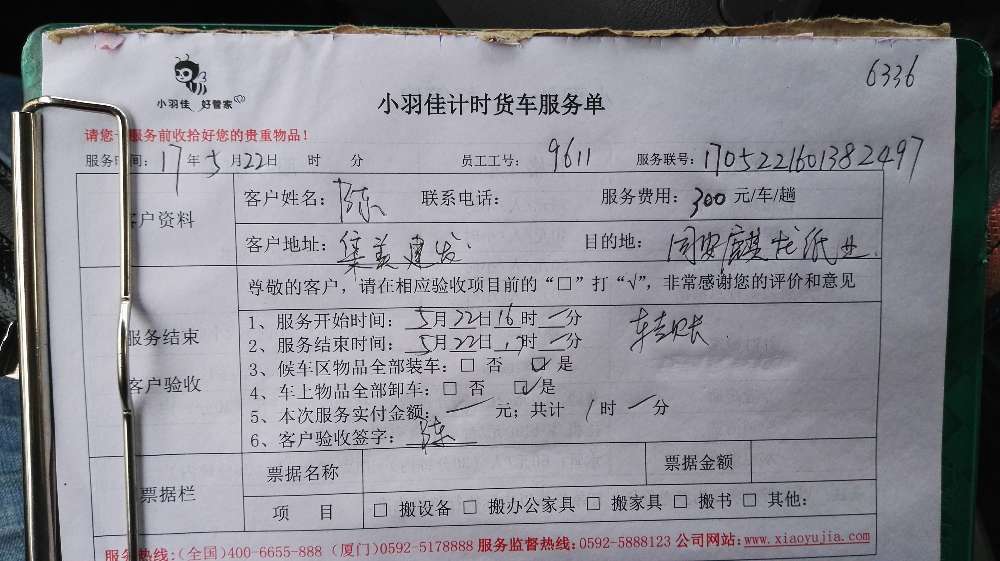 6336
小羽佳 好管家
小羽佳计时货车服务单
请您 服务前收拾好您的贵重物品！
服务时间：17年5月22日 时 分 员工工号：9611 服务联号：1705221601382497
客户资料
客户姓名：陈 联系电话： 服务费用：300元/车/趟
客户地址：集美建发 目的地：同安麒龙纸业
尊敬的客户，请在相应验收项目前的“□”打“√”，非常感谢您的评价和意见
服务结束
客户验收
1、服务开始时间：5月22日16时一分
2、服务结束时间：5月22日17时一分
3、候车区物品全部装车：□ 否 ☑ 是
4、车上物品全部卸车：□ 否 ☑ 是
5、本次服务实付金额：一元；共计 1时一分
6、客户验收签字：陈
票据栏
票据名称 票据金额
项 目 □ 搬设备 □ 搬办公家具 □ 搬家具 □ 搬书 □ 其他：
服务热线：（全国）400-6655-888（厦门）0592-5178888 服务监督热线：0592-5888123 公司网站：www.xiaoyujia.com